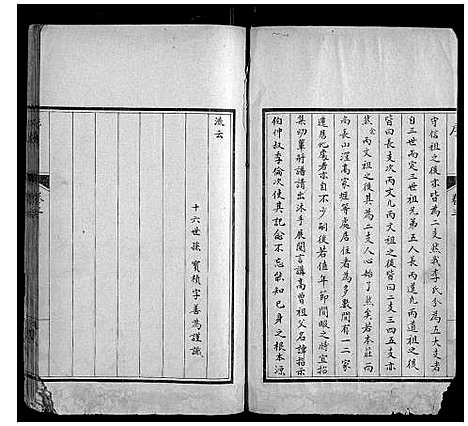 守信祖之後亦皆為二支然我李氏分為五大支者
自三世而定三世祖兄弟五人長雨道九雨道祖
皆曰長支次雨文九雨文祖之後皆曰二支三四五支
然念雨文祖之後其為二支人心始了然矣若本莊而
尚長山澤高家堰等處居住者為多數間有一二家
遷居他處者亦自不少嗣後若值年節閒暇之時宜招
集幼輩將譜請出沐手展閱言講高曾祖父名諱指示
伯仲叔季倫次使其記念不忘能知己身之根本源
流云
十六世孫寶積字善為謹識